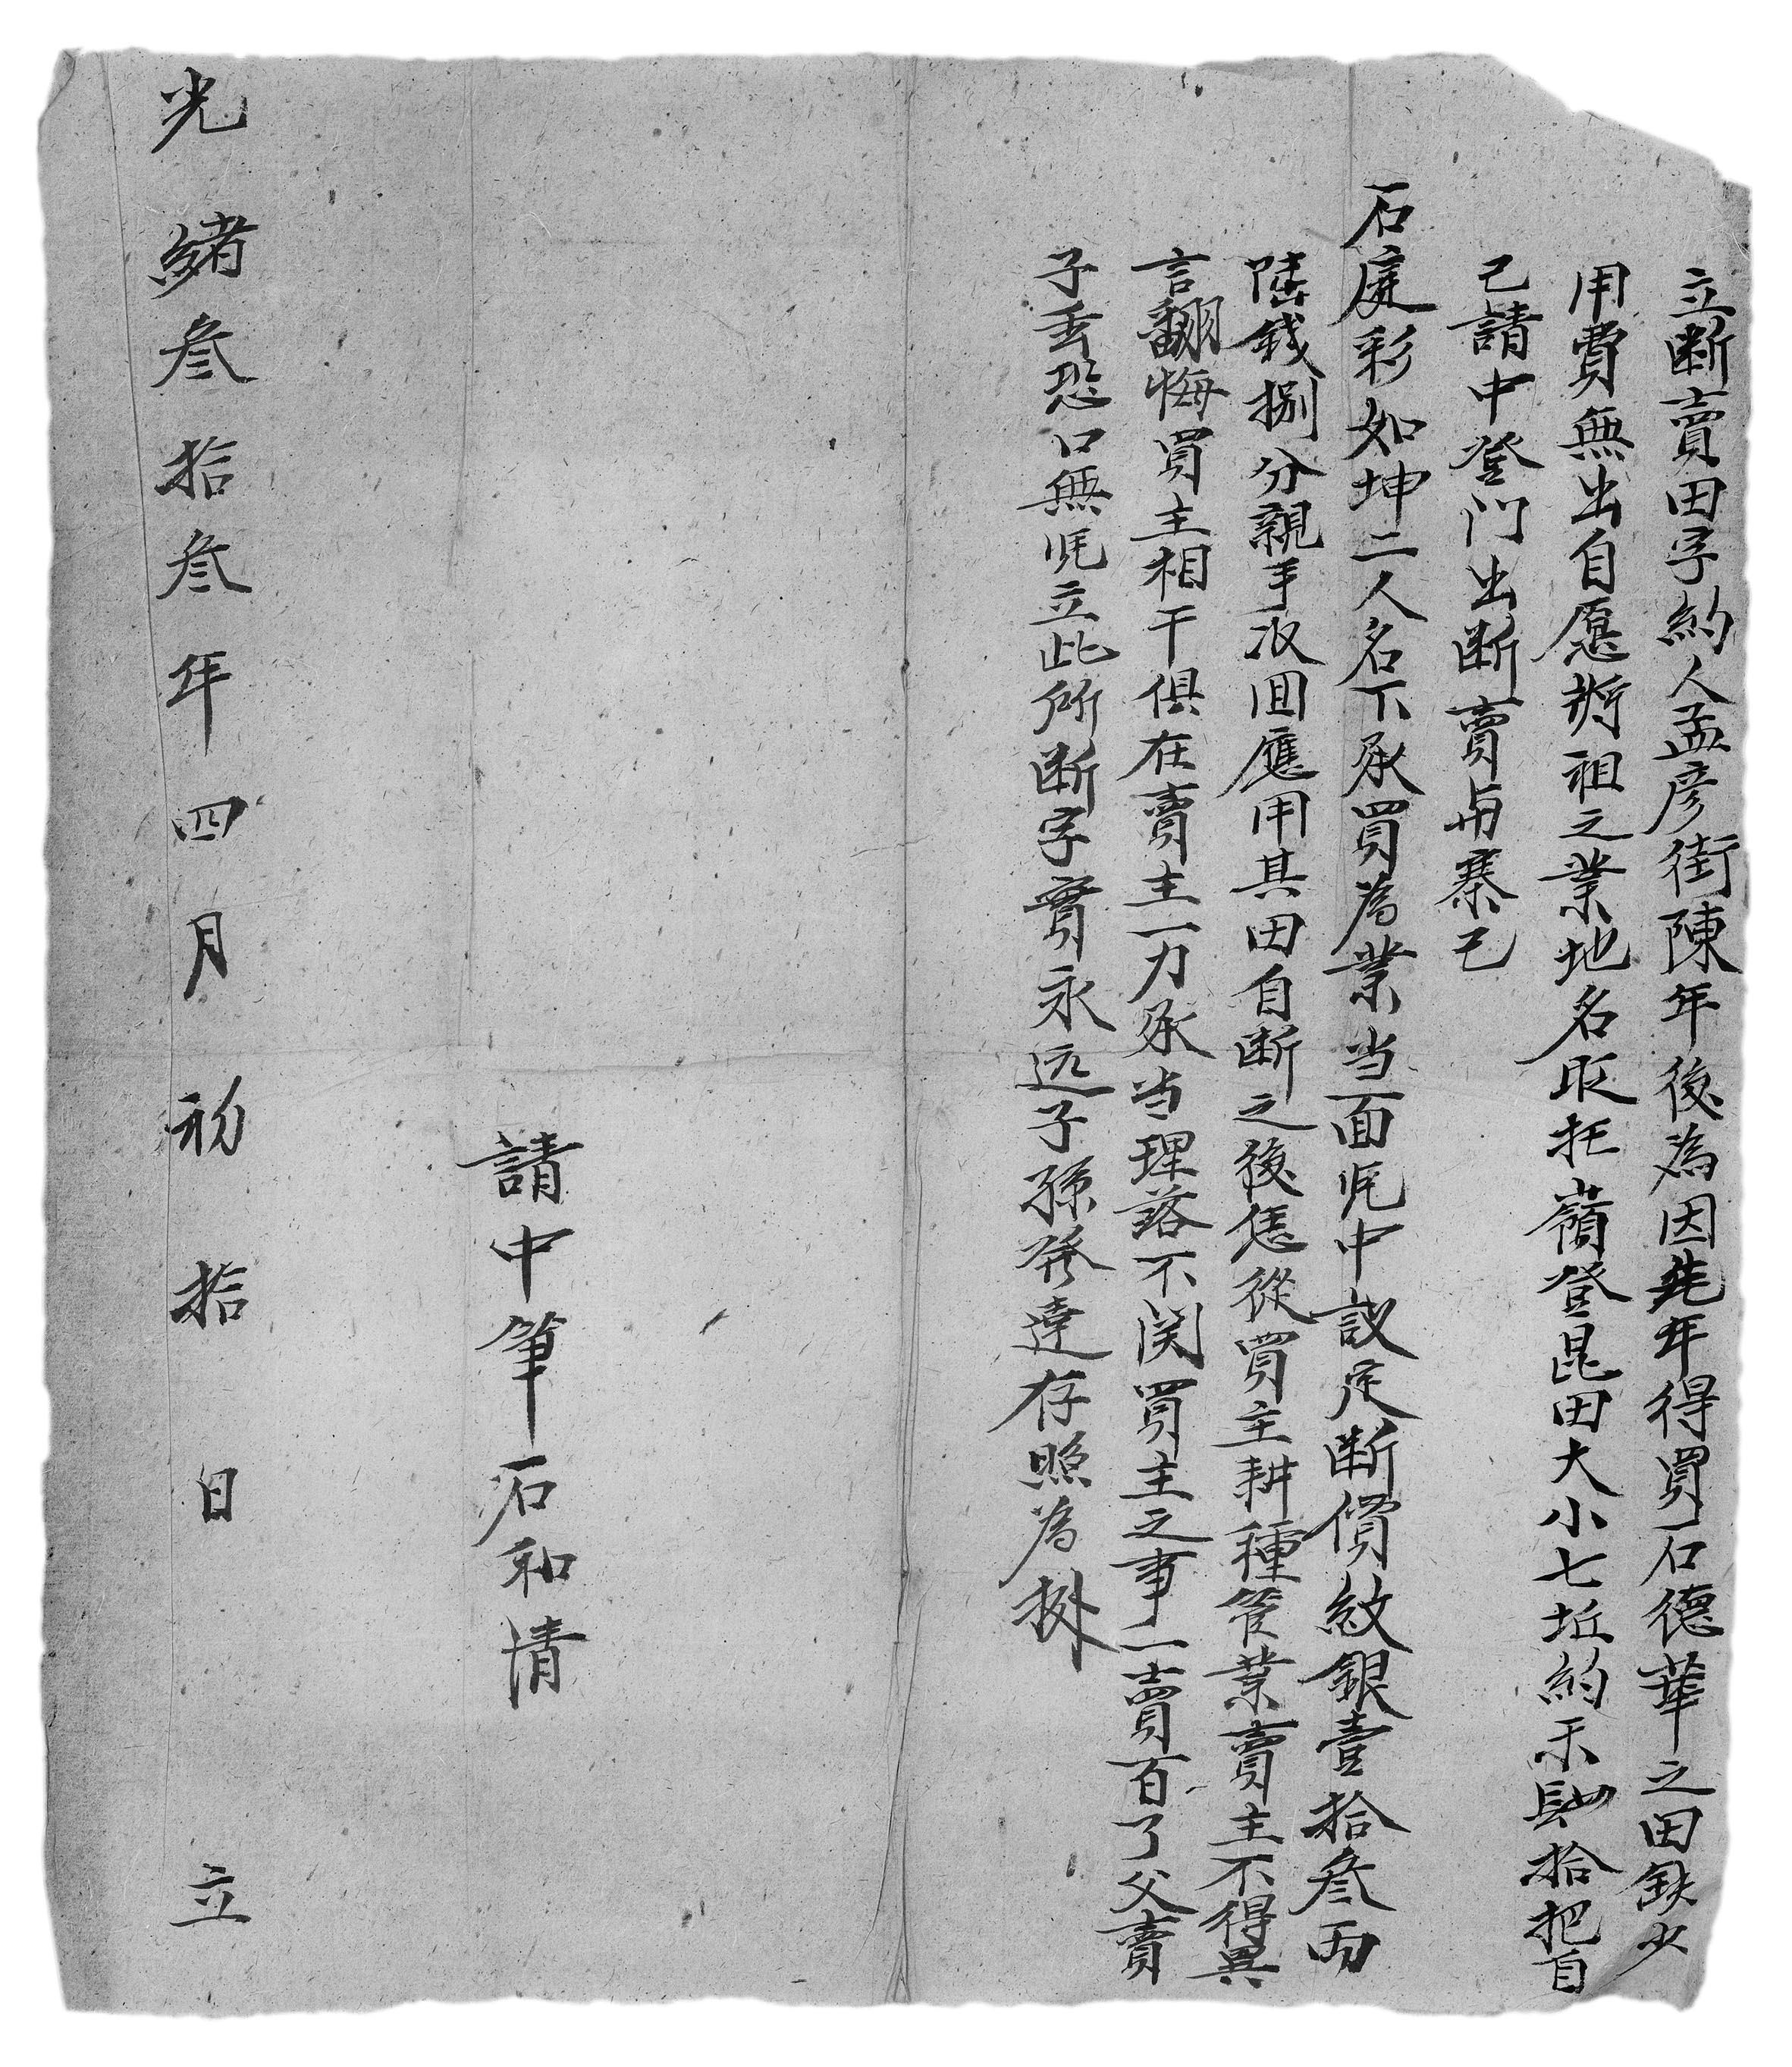 立断賣田字約人孟彦街陳年後為因先年得買石德華之田缺少
用費無出自愿將祖之業地名取托嶺登昆田大小七坵約禾肆拾把自
己請中登门出断賣与寨己
石庭彩如坤二人名下承買為業当面凭中議定断價紋銀壹拾叁両
陆錢捌分親手収囬應用其田自断之後恁從買主耕種管業賣主不得異
言翻悔買主相干俱在賣主一力承当理落不関買主之事一賣百了父賣
子丢恐口無凭立此所断字實永远子孫發達存照為據
請中筆石和清
光緒叁拾叁年四月初拾日立